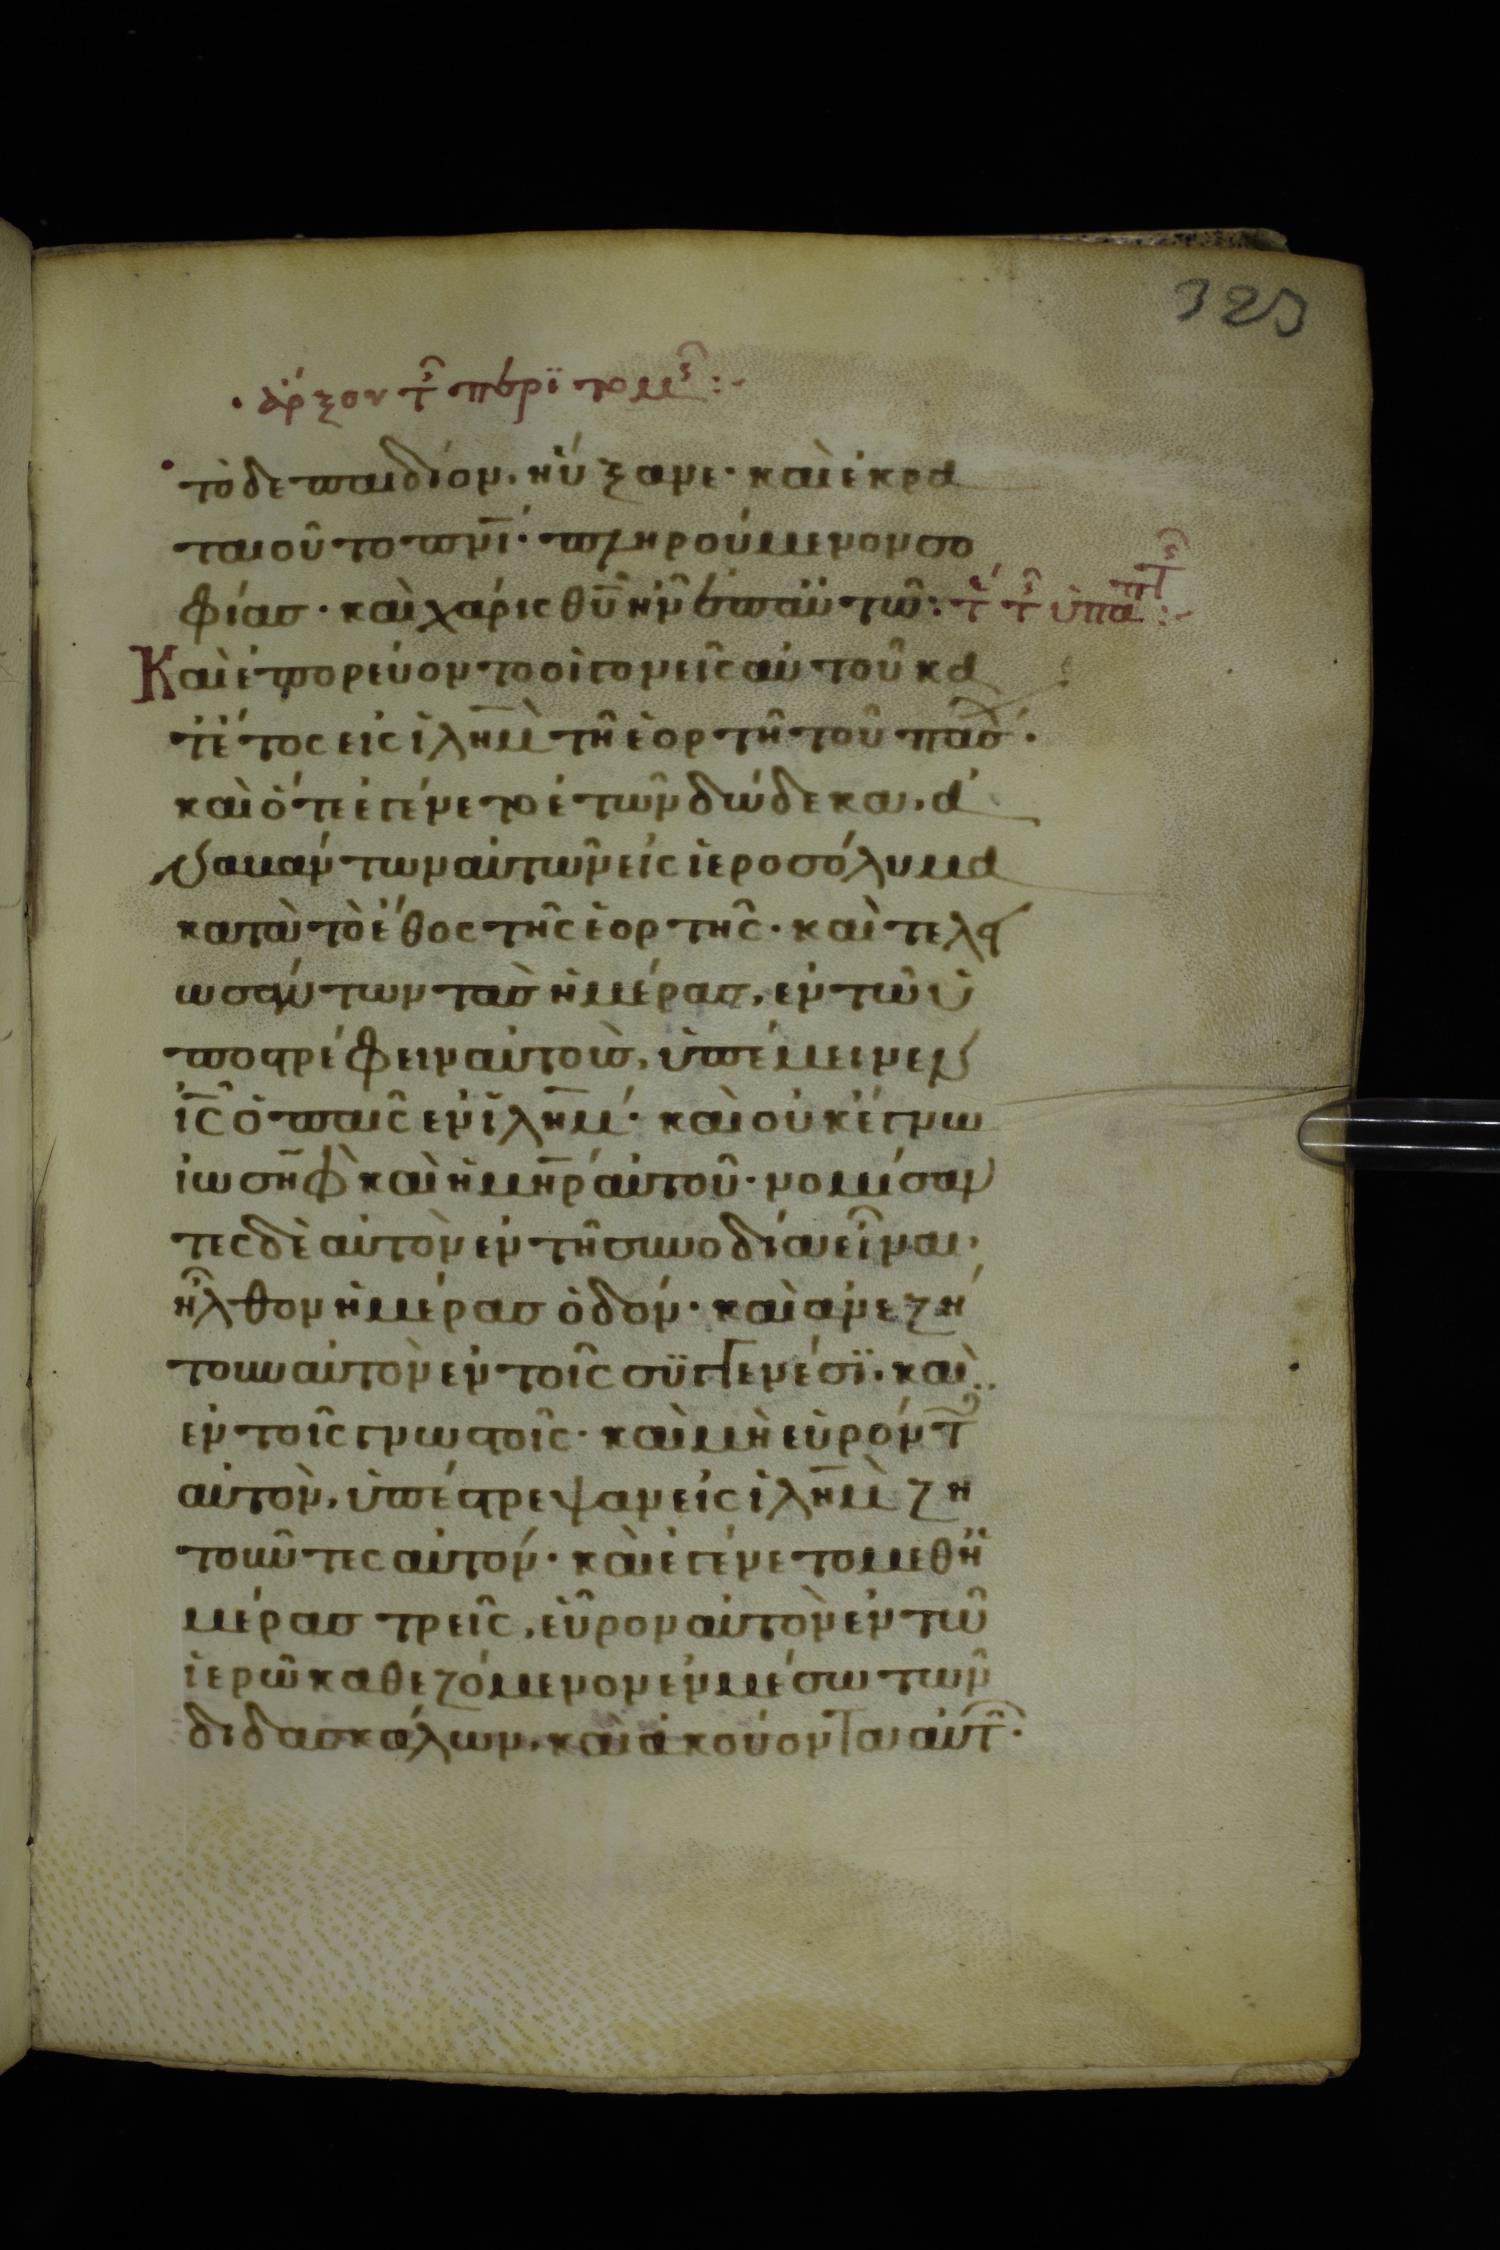 323
· ἄρξου τῆς περϊτομῆς :-
τὸ δε παιδίον, ηὔξανε· καὶ ἐκρα
ταιοῦτο πνι· πληρούμενον σο
φίας · καὶ χάρις θυ ἦν ἐπαϋτῶ: τέ τῆς ὑπαπτῆς :-
Καὶ ἐπορεύοντο οἱ γονεῖς αὐτοῦ κα
τέτος εἰς ἰλημ τῆ ἑορτῆ τοῦ πάσχα·
καὶ ὅτε ἐγένετο ἐτῶν δώδεκα, ἀ
ναβάντων αὐτῶν εἰς ἱεροσόλυμα
κατὰ τὸ ἔθος τῆς ἑορτῆς · καὶ τελει
ωσάντων τὰς ἡμέρας, εν τῶ ὑ
ποστρέφειν αὐτοὺς, ὑπέμεινεν
ις ὁ παῖς ἐν ἰλημ· καὶ οὐκ ἔγνω
ἰωσὴφ καὶ ἡ μηρ αὐτοῦ· νομίσαν
τες δὲ αὐτὸν εν τῆ συνοδία εἶναι,
ἦλθον ἡμέρας ὁδόν· καὶ ἀνεζή
τουν αὐτὸν ἐν τοῖς σϋγγενέσϊ. καὶ
ἐν τοῖς γνωστοῖς· καὶ μὴ εὑρόντες
αὐτὸν, ὑπέστρεψαν εἰς ἰλημ ζη
τοῦντες αὐτόν· καὶ ἐγένετο μεθ ἡ
μέρας τρεῖς, εὗρον αὐτὸν ἐν τῶ
ἱερῶ καθεζόμενον ἐν μέσω τῶν
διδασκάλων, καὶ ἀκούοντα αὐτῶν·